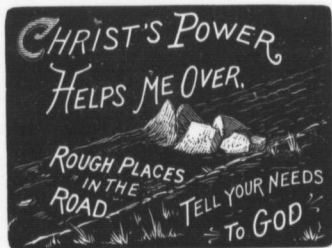 CHRIST'S POWER
HELPS ME OVER.
ROUGH PLACES
IN THE
ROAD
TELL YOUR NEEDS
TO GOD